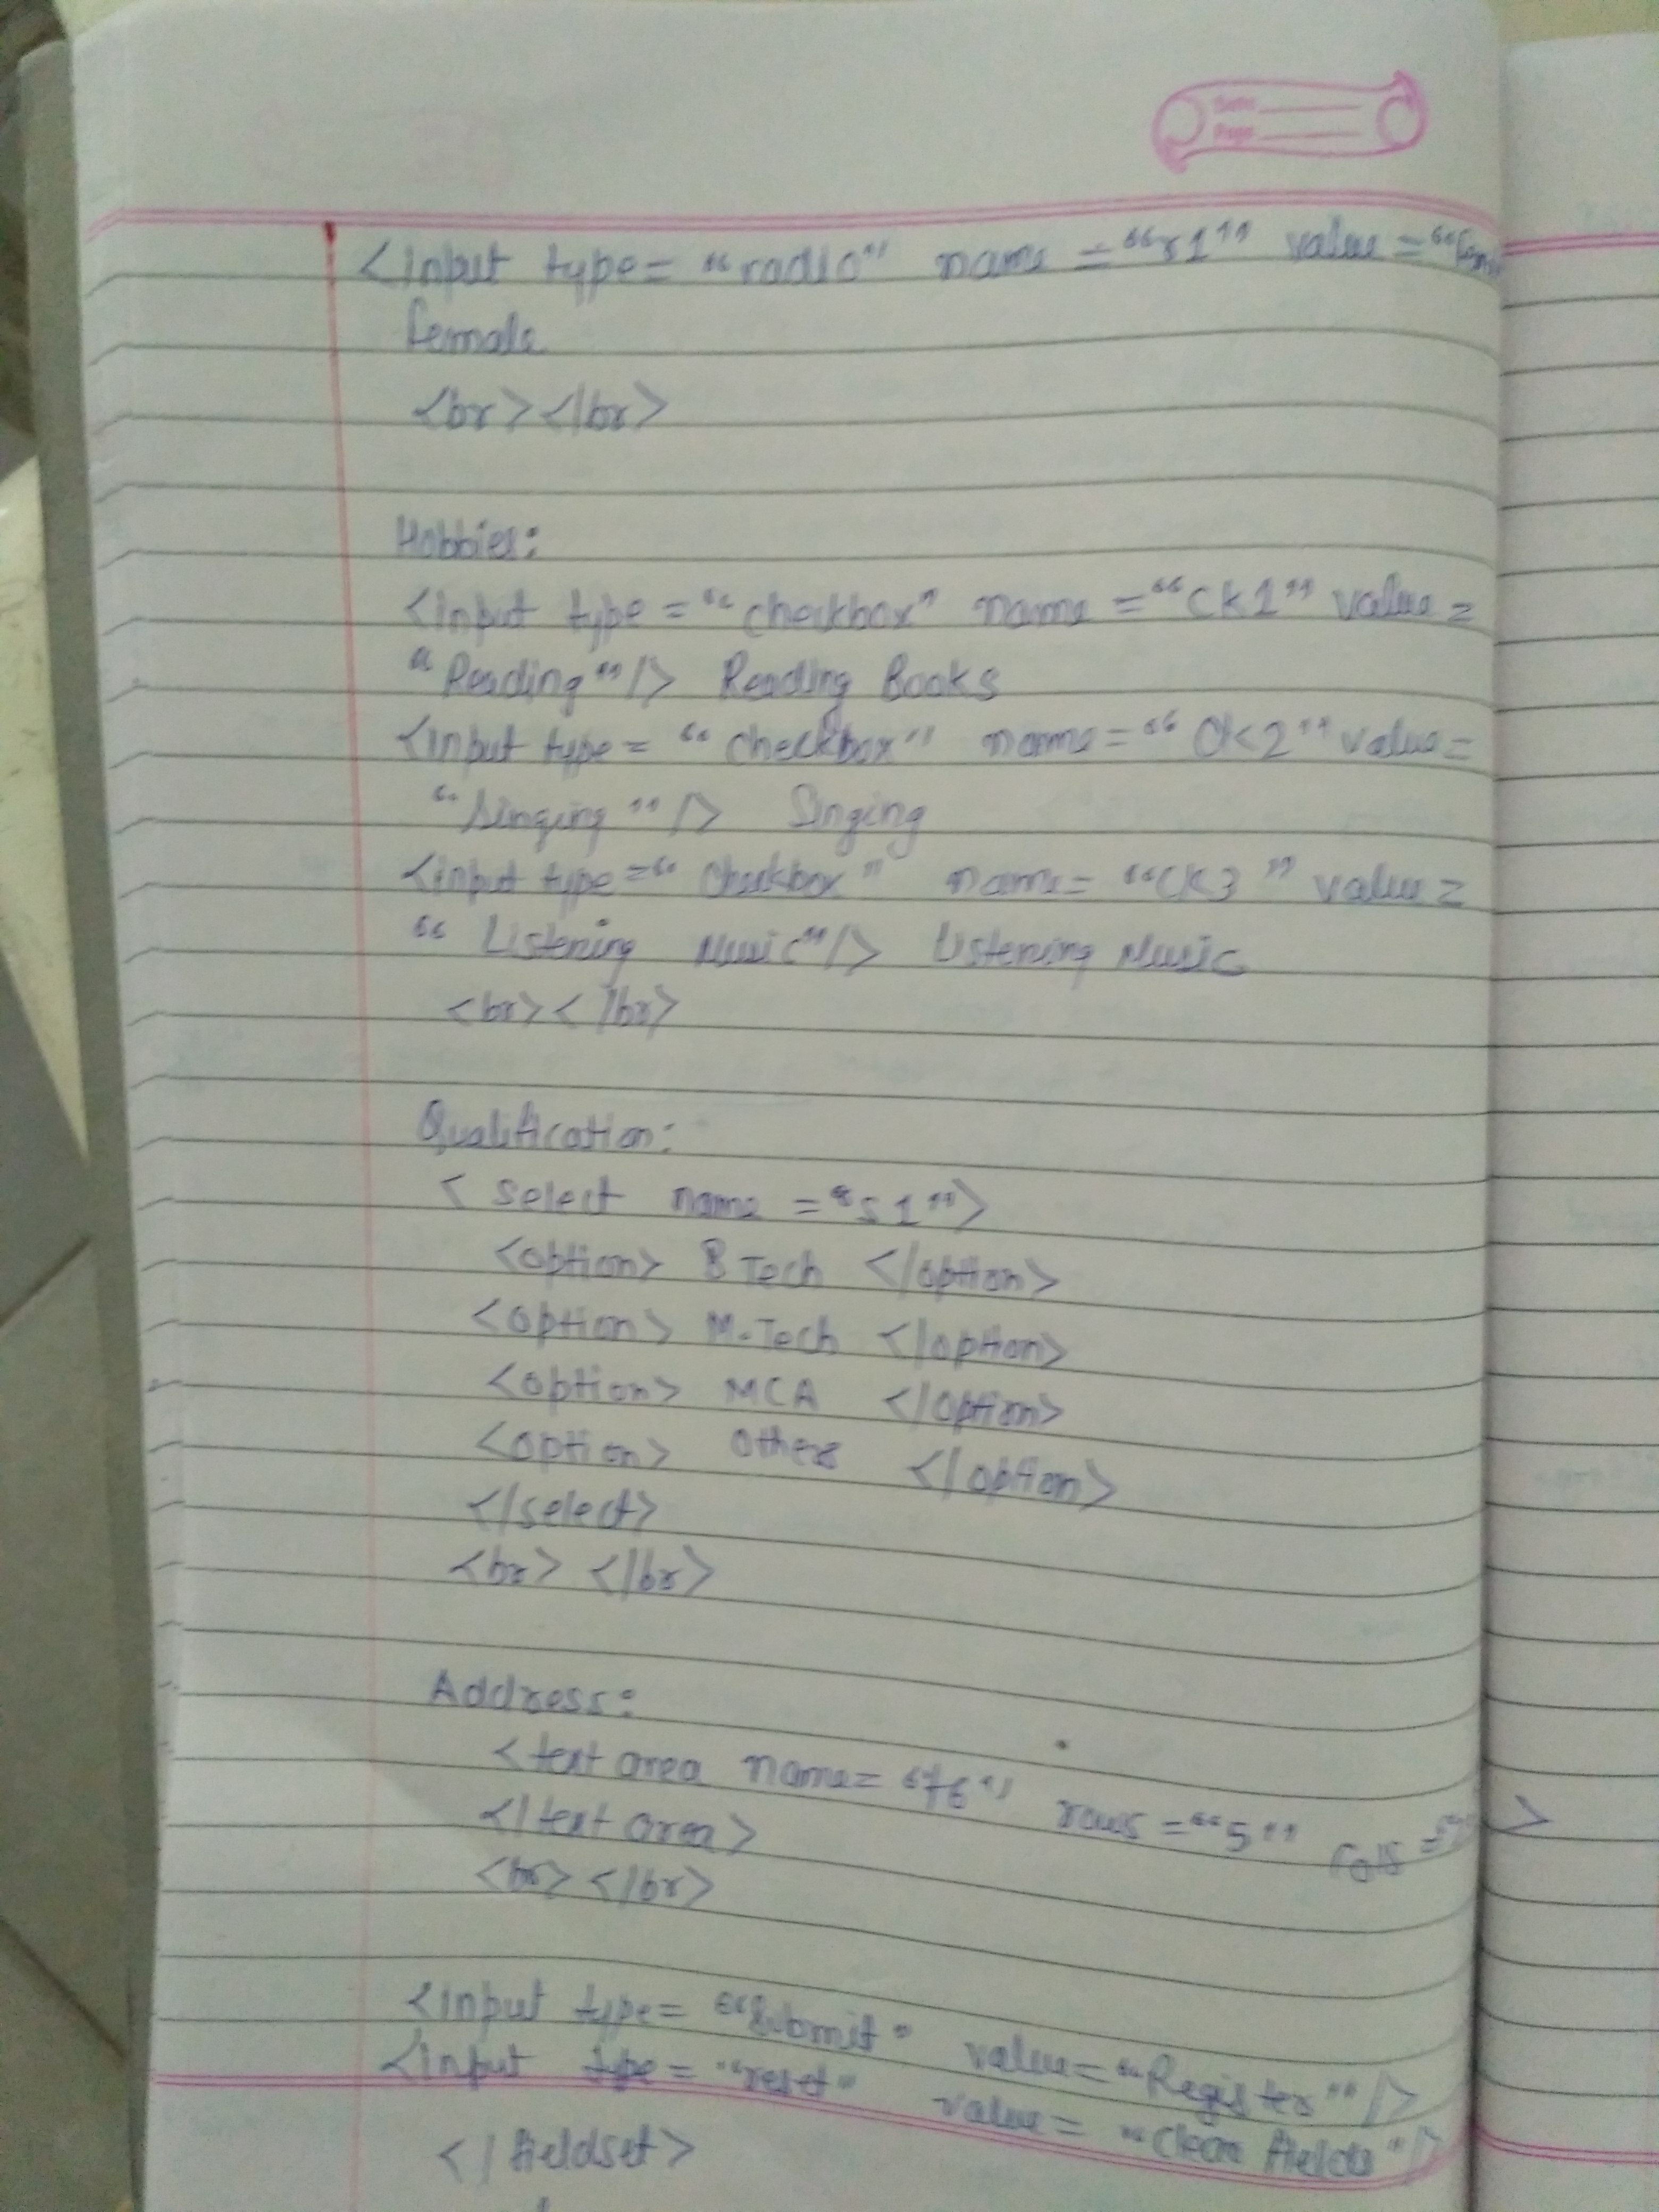 Date
Page
<input type= "radio" name = "r1" value =
female
<br></br>
Hobbies:
<input type = "checkbox" name = "Ck1" value =
"Reading"/> Reading Books
<input type = "checkbox" name = "Ck2" value =
"Singing"/> Singing
<input type = "checkbox" name= "CK3" value =
"Listening Music"/> Listening Music
<br></br>
Qualification:
< select name = "s1">
<option> B Tech </option>
<option> M.Tech </option>
<option> MCA </option>
<option> Others </option>
</select>
<br> </br>
Address:
<text area name= "t6" rows = "5" cols = >
</text area>
<br> </br>
<input type= "submit" value= "Register" />
<input type = "reset" value = "Clear Fields" />
</fieldset>